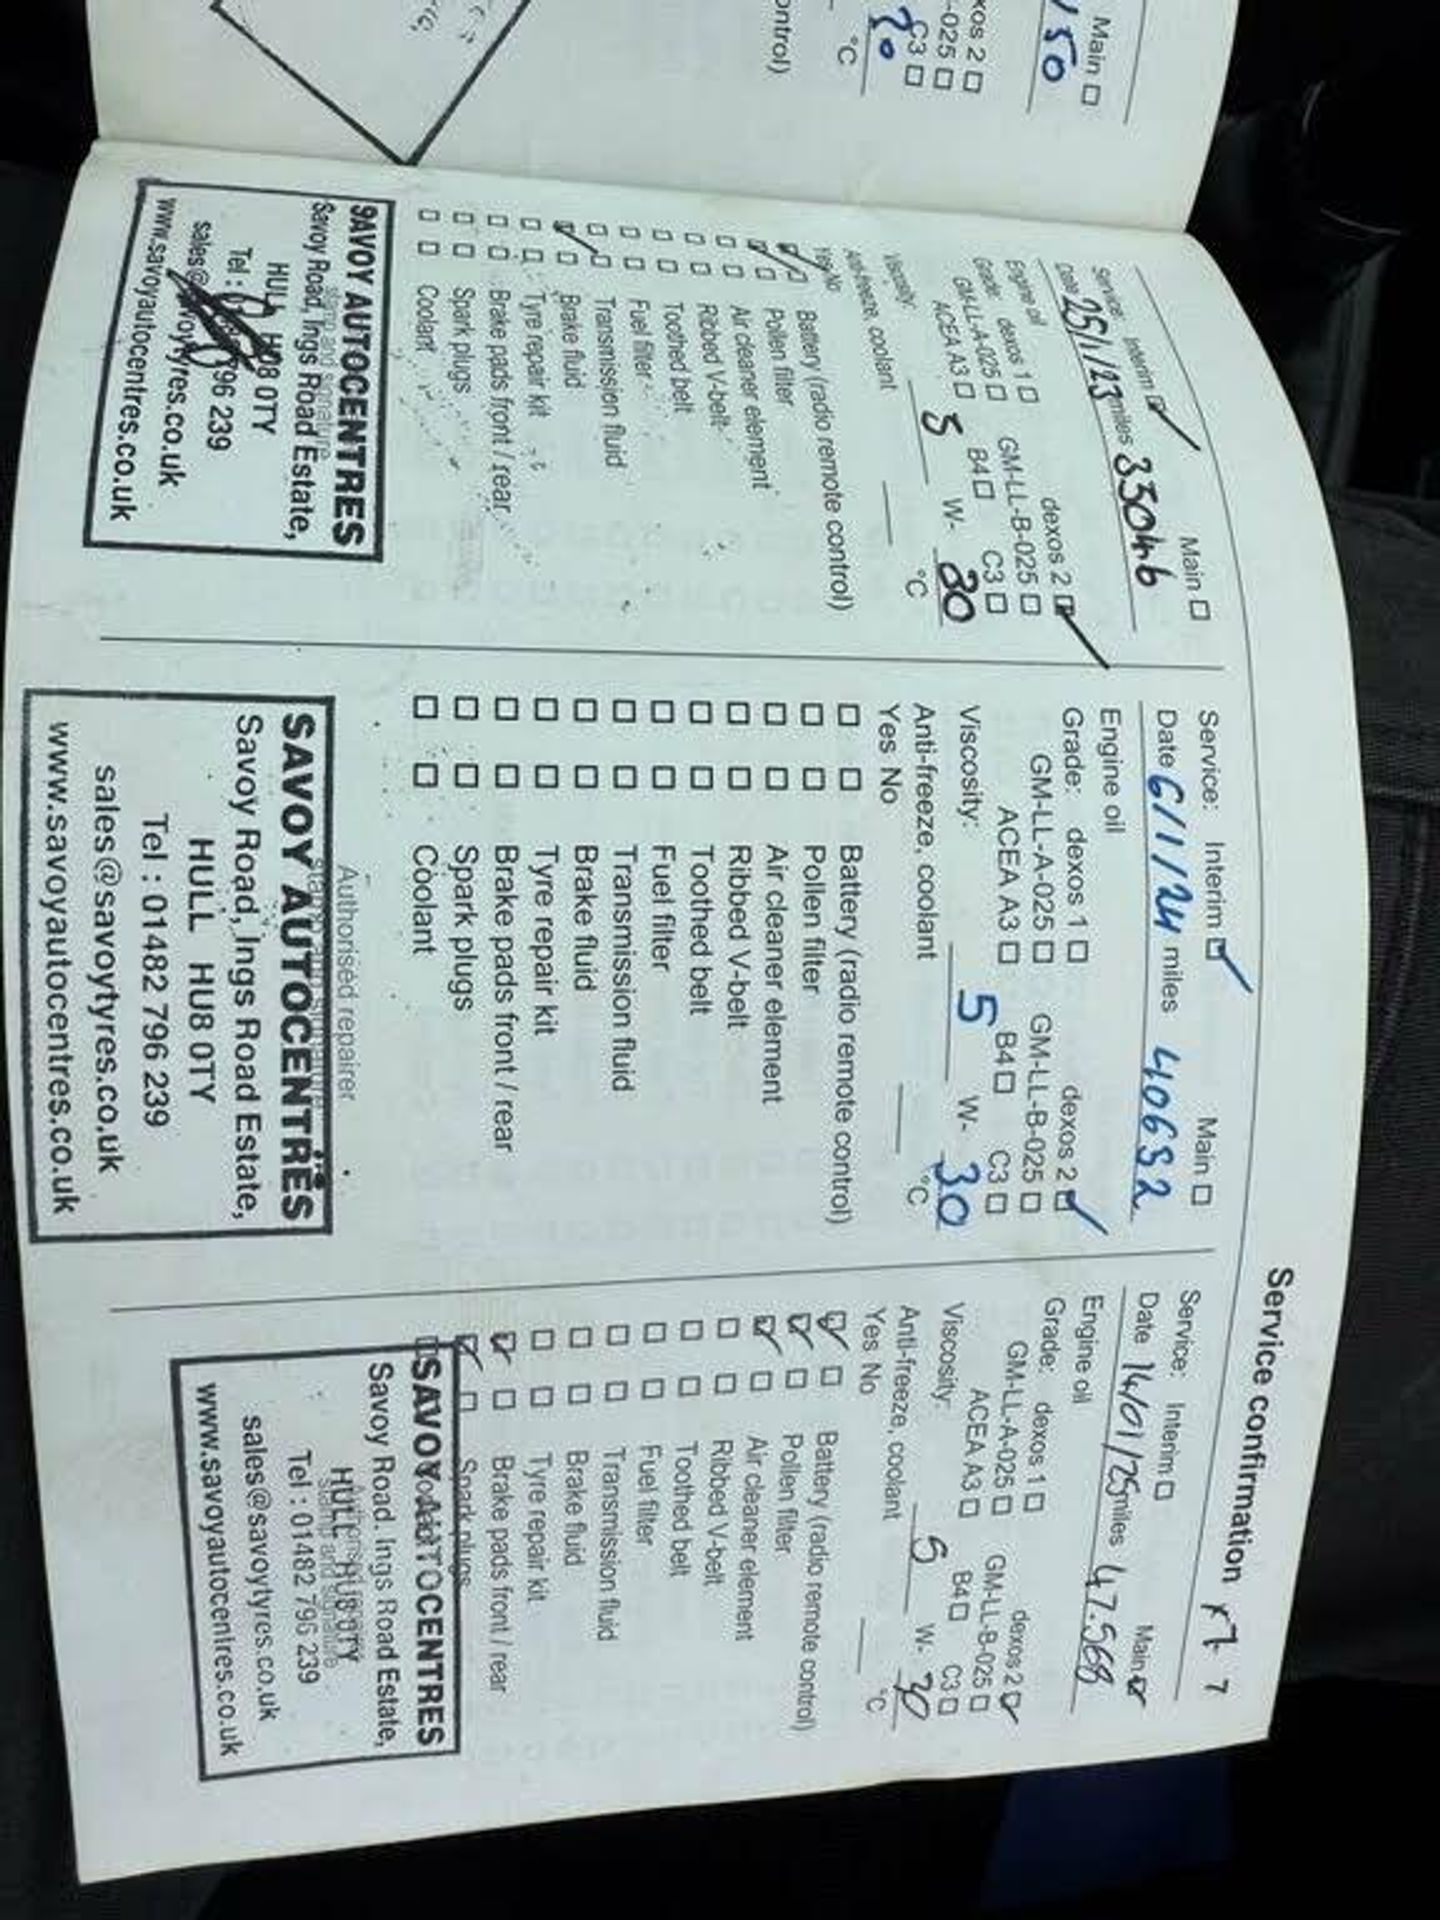 Main ☐
150
xos 2 ☐
-025 ☐
C3 ☐
°C
ontrol)
Service: Interim ☑ Main ☐
Date 25/1/23 miles 33046
Engine oil
Grade: dexos 1 ☐ dexos 2 ☑
GM-LL-A-025 ☐ GM-LL-B-025 ☐
ACEA A3 ☐ B4 ☐ C3 ☐
Viscosity: 5 W- 30
Anti-freeze, coolant °C
Yes No
☑ ☐ Battery (radio remote control)
☑ ☐ Pollen filter
☐ ☐ Air cleaner element
☐ ☐ Ribbed V-belt
☐ ☐ Toothed belt
☐ ☐ Fuel filter
☐ ☐ Transmission fluid
☑ ☐ Brake fluid
☐ ☐ Tyre repair kit
☐ ☐ Brake pads front / rear
☐ ☐ Spark plugs
☐ ☐ Coolant
SAVOY AUTOCENTRES
Savoy Road, Ings Road Estate,
stamp and signature
HULL HU8 0TY
Tel : 796 239
sales@savoytyres.co.uk
www.savoyautocentres.co.uk
Service confirmation 7
Service: Interim ☑ Main ☐
Date 6/1/24 miles 40652
Engine oil
Grade: dexos 1 ☐ dexos 2 ☑
GM-LL-A-025 ☐ GM-LL-B-025 ☐
ACEA A3 ☐ B4 ☐ C3 ☐
Viscosity: 5 W- 30
Anti-freeze, coolant °C
Yes No
☐ ☐ Battery (radio remote control)
☐ ☐ Pollen filter
☐ ☐ Air cleaner element
☐ ☐ Ribbed V-belt
☐ ☐ Toothed belt
☐ ☐ Fuel filter
☐ ☐ Transmission fluid
☐ ☐ Brake fluid
☐ ☐ Tyre repair kit
☐ ☐ Brake pads front / rear
☐ ☐ Spark plugs
☐ ☐ Coolant
Authorised repairer
stamp and signature
SAVOY AUTOCENTRES
Savoy Road, Ings Road Estate,
HULL HU8 0TY
Tel : 01482 796 239
sales@savoytyres.co.uk
www.savoyautocentres.co.uk
Service: Interim ☐ Main ☑
Date 14/01/25 miles 47.568
Engine oil
Grade: dexos 1 ☐ dexos 2 ☑
GM-LL-A-025 ☐ GM-LL-B-025 ☐
ACEA A3 ☐ B4 ☐ C3 ☐
Viscosity: 5 W- 30
Anti-freeze, coolant °C
Yes No
☑ ☐ Battery (radio remote control)
☑ ☐ Pollen filter
☑ ☐ Air cleaner element
☐ ☐ Ribbed V-belt
☐ ☐ Toothed belt
☐ ☐ Fuel filter
☐ ☐ Transmission fluid
☐ ☐ Brake fluid
☐ ☐ Tyre repair kit
☑ ☐ Brake pads front / rear
☑ ☐ Spark plugs
SAVOY AUTOCENTRES
Savoy Road. Ings Road Estate,
HULL HU8 0TY
stamp and signature
Tel : 01482 796 239
sales@savoytyres.co.uk
www.savoyautocentres.co.uk